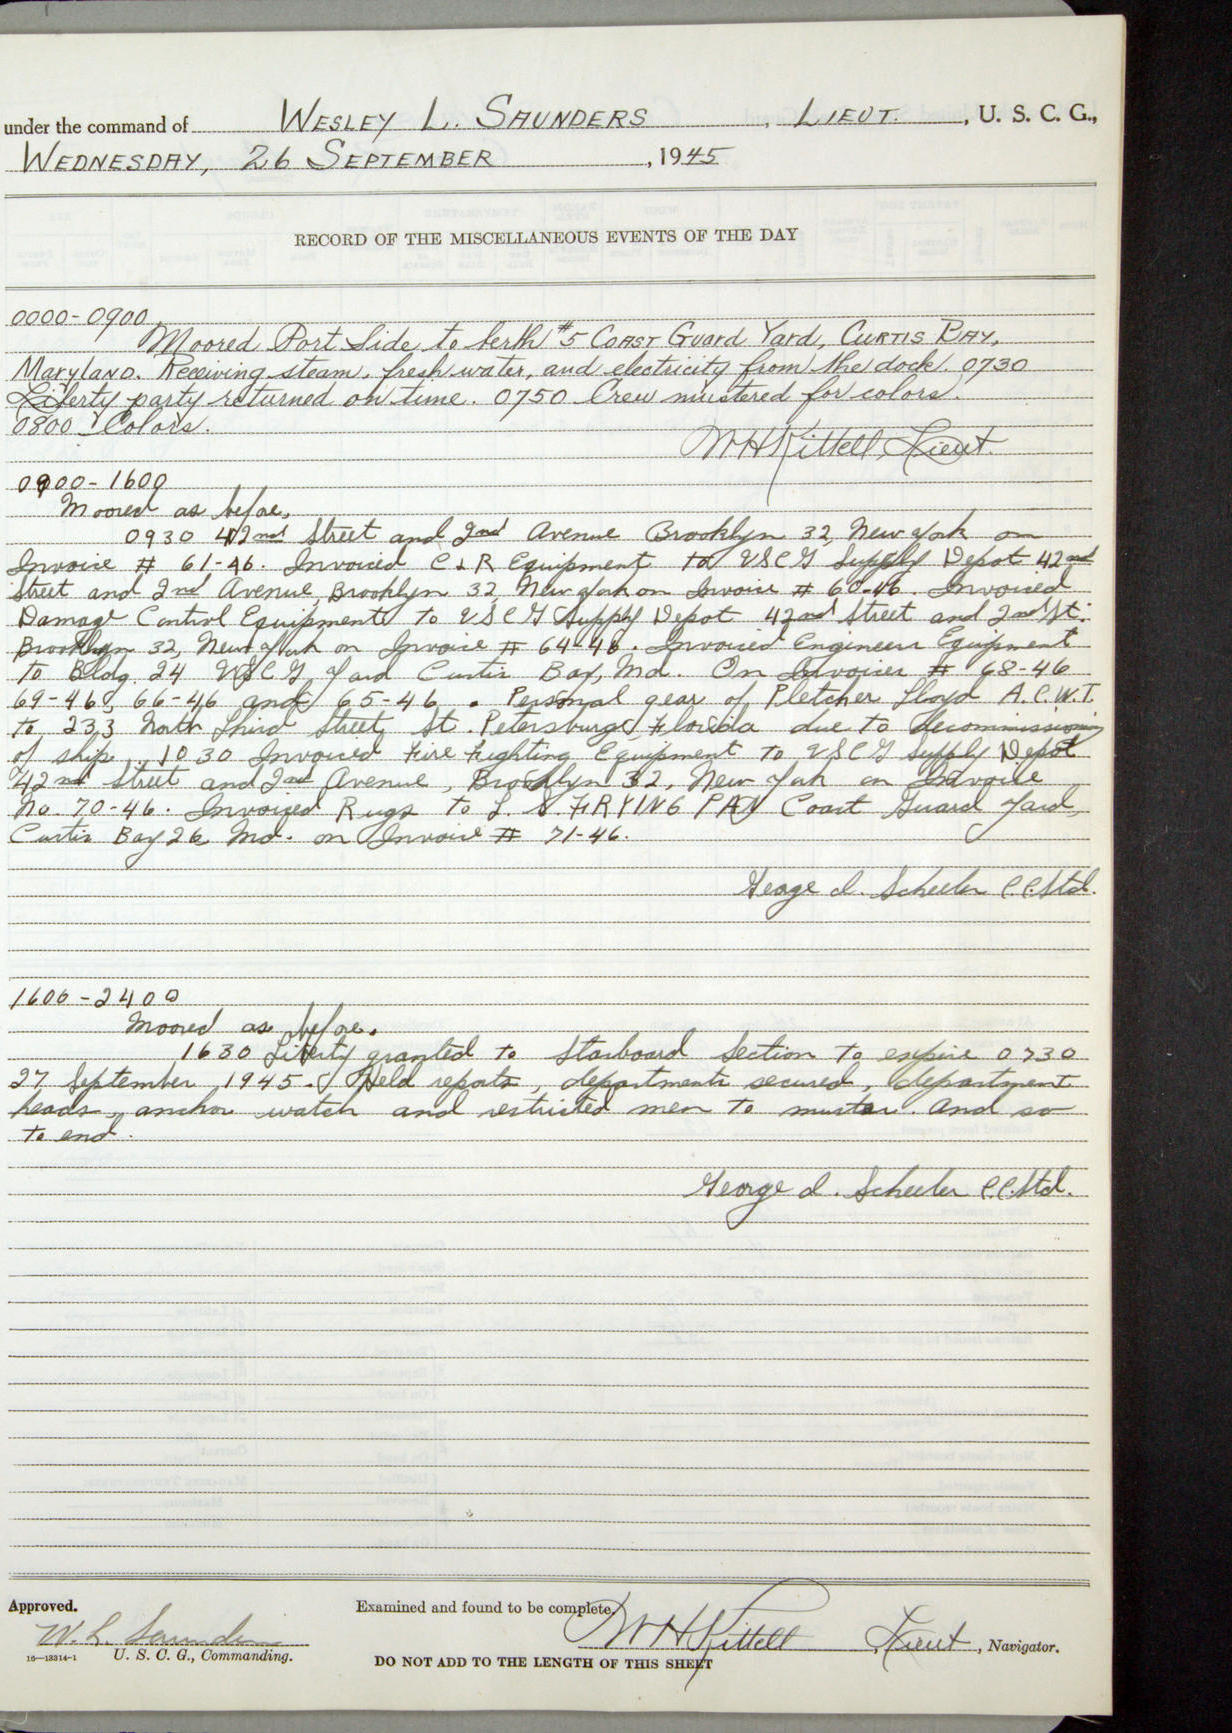 under the command of WESLEY L. SAUNDERS, LIEUT., U. S. C. G.,
WEDNESDAY, 26 SEPTEMBER, 1945
RECORD OF THE MISCELLANEOUS EVENTS OF THE DAY
0000-0900
Moored Port Side to berth #5 COAST GUARD YARD, CURTIS BAY,
MARYLAND. Receiving steam, fresh water, and electricity from the dock. 0730
Liberty party returned on time. 0750 Crew mustered for colors.
0800 Colors.
W H Kittell, Lieut.
0900-1600
Moored as before.
0930 42nd Street and 2nd Avenue Brooklyn 32, New York on
Invoice # 61-46. Invoiced C & R Equipment to USCG Supply Depot 42nd
Street and 2nd Avenue, Brooklyn 32, New York on Invoice # 60-46. Invoiced
Damage Control Equipment to USCG Supply Depot 42nd Street and 2nd St.
Brooklyn 32, New York on Invoice # 64-46. Invoiced Engineer Equipment
to Bldg. 24 USCG Yard Curtis Bay, Md. On Invoices # 68-46
69-46, 66-46 and 65-46. Personal gear of Pletcher Lloyd A.C.W.T.
to 233 North Third Street, St. Petersburg Florida due to decommissioning
of ship. 1030 Invoiced Fire Fighting Equipment to USCG Supply Depot
42nd Street and 2nd Avenue, Brooklyn 32, New York on Invoice
No. 70-46. Invoiced Rugs to L. S. FRYING PAN Coast Guard Yard,
Curtis Bay 26 Md. on Invoice # 71-46.
George d. Scheeler C.C.Std.
1600-2400
Moored as before.
1630 Liberty granted to Starboard Section to expire 0730
27 September 1945. Held reports, departments secured, department
heads, anchor watch and restricted men to muster. And so
to end.
George d. Scheeler C.C.Std.
Approved.
Examined and found to be complete.
W. L. Saunders
W H Kittell, Lieut, Navigator.
16—13314-1 U. S. C. G., Commanding.
DO NOT ADD TO THE LENGTH OF THIS SHEET